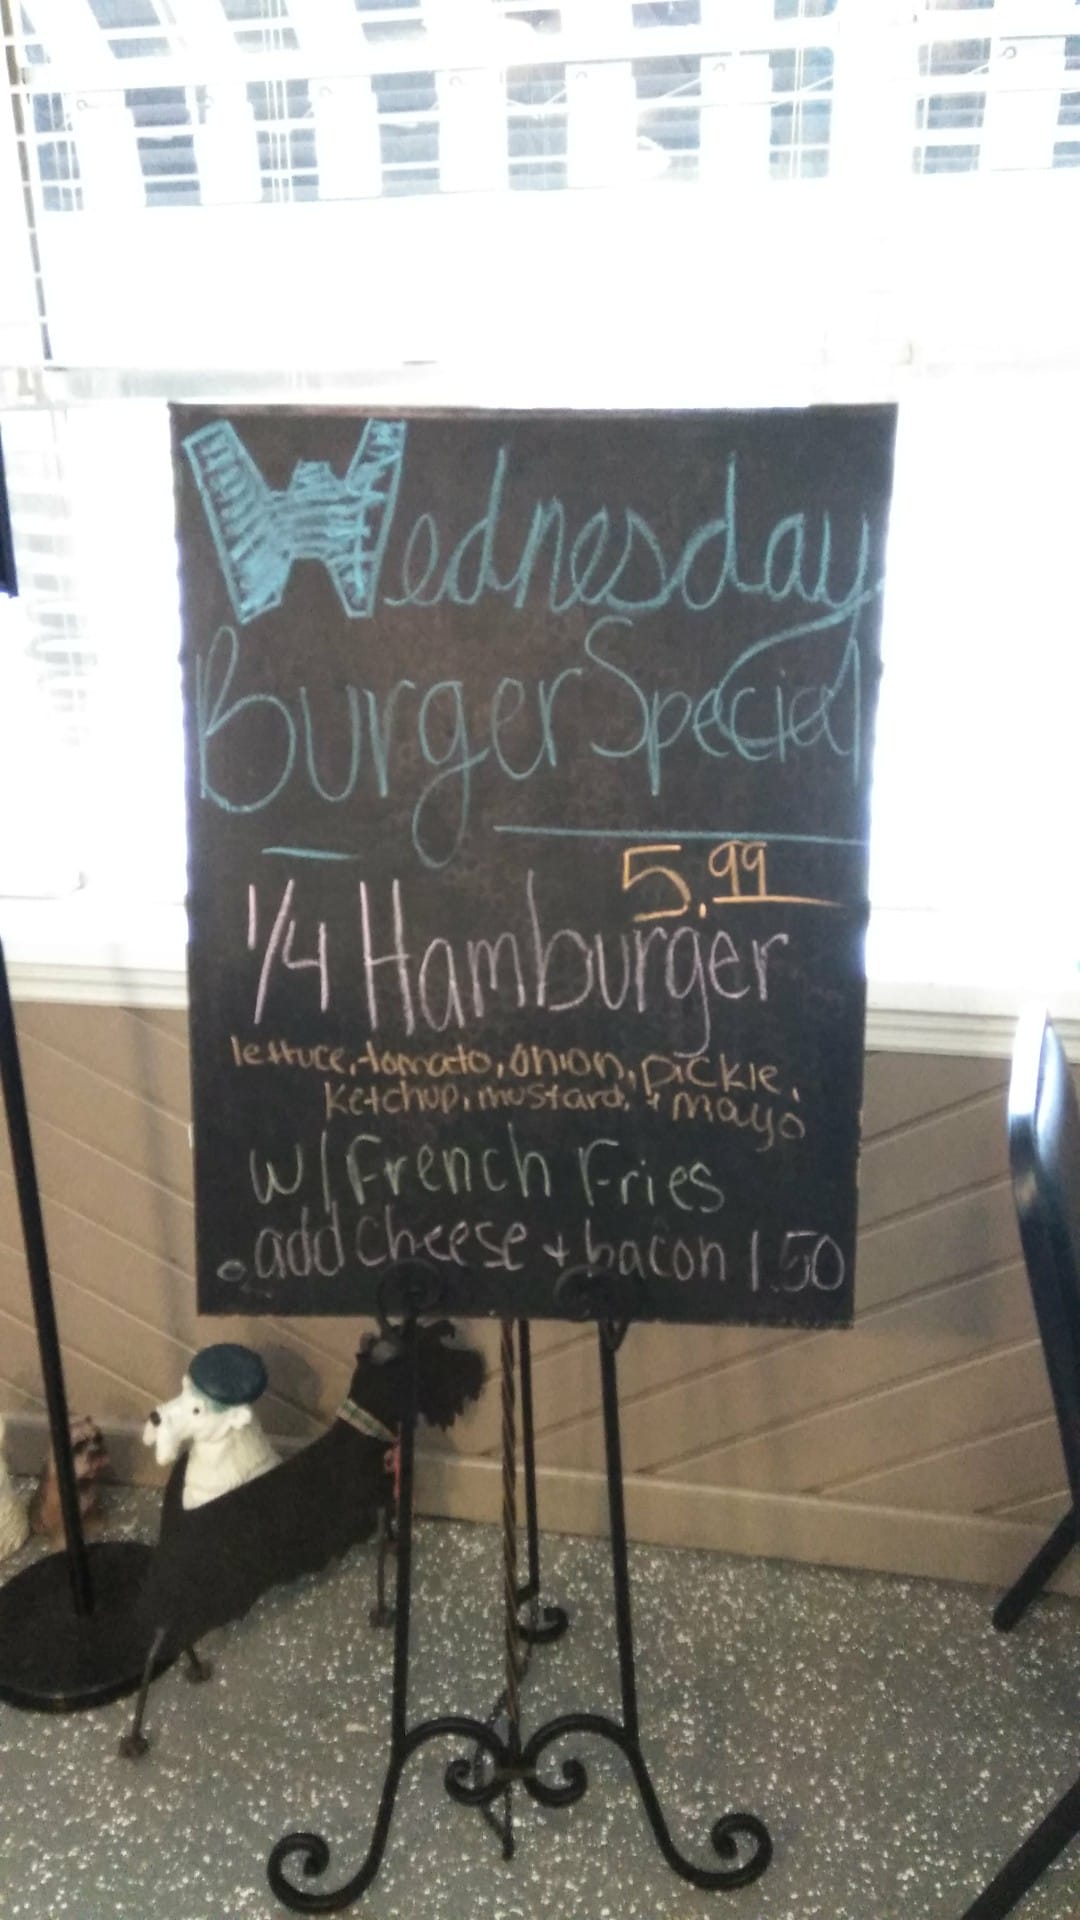 Wednesday
Burger Special
5.99
1/4 Hamburger
lettuce, tomato, onion, pickle,
ketchup, mustard, + mayo
w/ French Fries
. add cheese + bacon 1.50